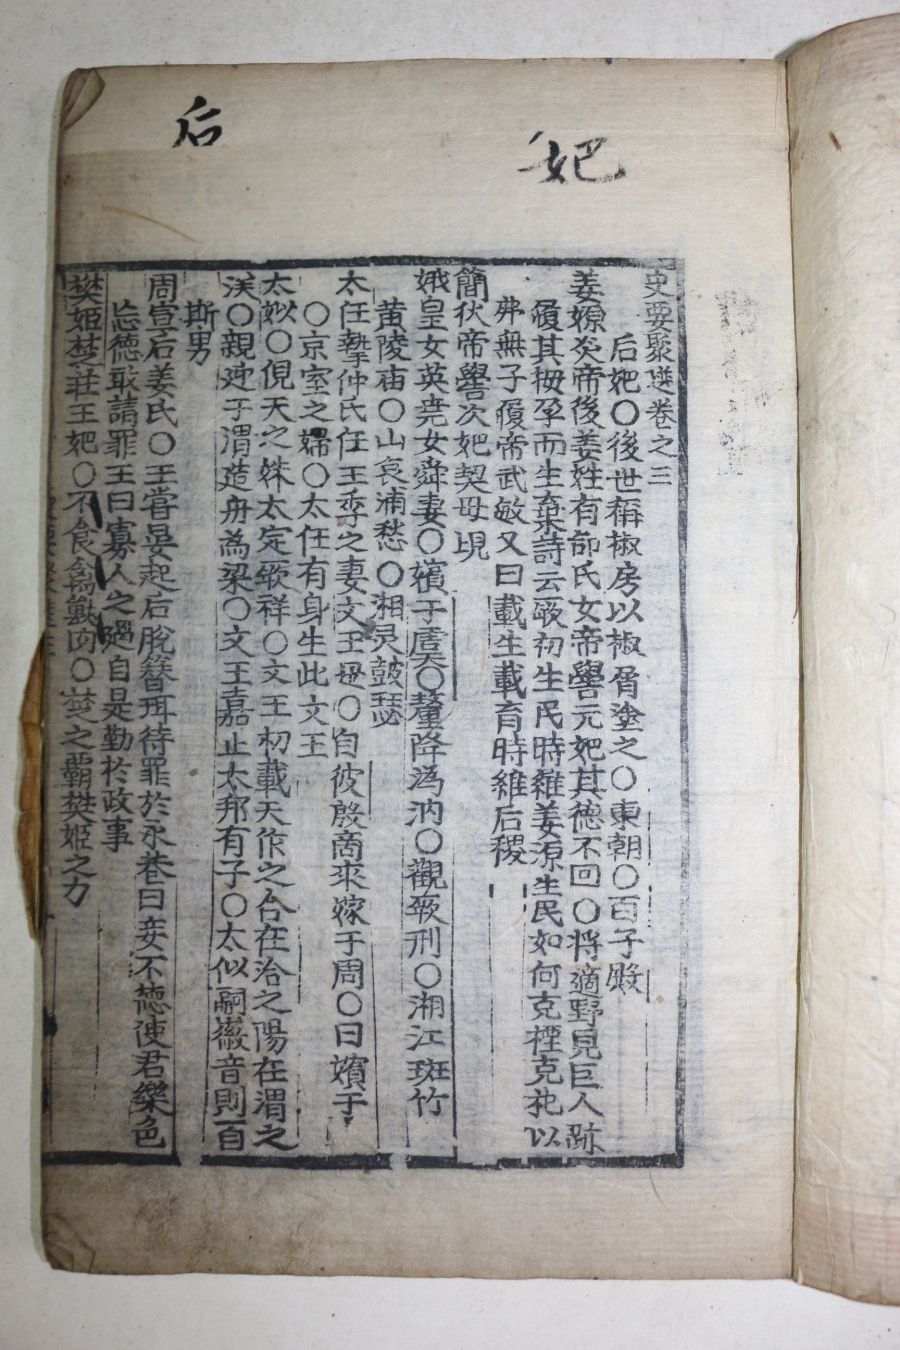 妃
后
史要聚選卷之三
后妃〇後世稱椒房以椒屑塗之〇東朝〇百子殿
姜嫄炎帝後姜姓有邰氏女帝嚳元妃其德不回〇將適野見巨人跡
履其拇孕而生棄詩云厥初生民時維姜源生民如何克禋克祀以
弗無子履帝武敏又曰載生載育時維后稷
簡狄帝嚳次妃契母
娥皇女英堯女舜妻〇嬪于虞〇釐降溈汭〇觀厥刑〇湘江斑竹
黄陵庙〇山哀浦愁〇湘灵鼓瑟
太任摯仲氏任王季之妻文王母〇自彼殷商來嫁于周〇曰嬪于
〇京室之婦〇太任有身生此文王
太姒〇俔天之妹太定厥祥〇文王初載天作之合在洽之陽在渭之
涘〇親迎于渭造舟為梁〇文王嘉止太邦有子〇太似嗣徽音則百
斯男
周宣后姜氏〇王嘗晏起后脫簪珥待罪於永巷曰妾不德使君樂色
忘德敢請罪王曰寡人之過自是勤於政事
樊姬楚莊王妃〇不食禽獸肉〇楚之霸樊姬之力